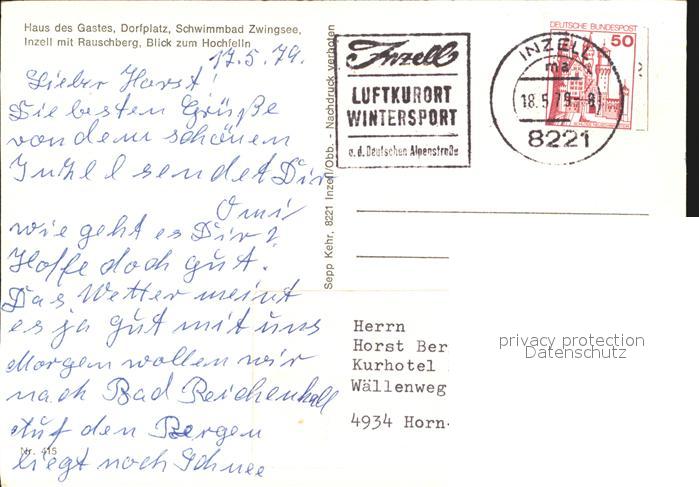 Haus des Gastes, Dorfplatz, Schwimmbad Zwingsee,
Inzell mit Rauschberg, Blick zum Hochfelln
17.5.79.
Lieber Horst!
Die besten Grüße
von dem schönen
Inzell sendet Dir
Omi
wie geht es Dir?
Hoffe doch gut.
Das Wetter meint
es ja gut mit uns
Morgen wollen wir
nach Bad Reichenhall
Auf den Bergen
liegt noch Schnee
Nr. 415
Sepp Kehr, 8221 Inzell/Obb. - Nachdruck verboten
Inzell
LUFTKURORT
WINTERSPORT
a. d. Deutschen Alpenstraße
INZELL
ma
18.5.79-8
8221
DEUTSCHE BUNDESPOST
50
Herrn
Horst Ber
Kurhotel
Wällenweg
4934 Horn
privacy protection
Datenschutz